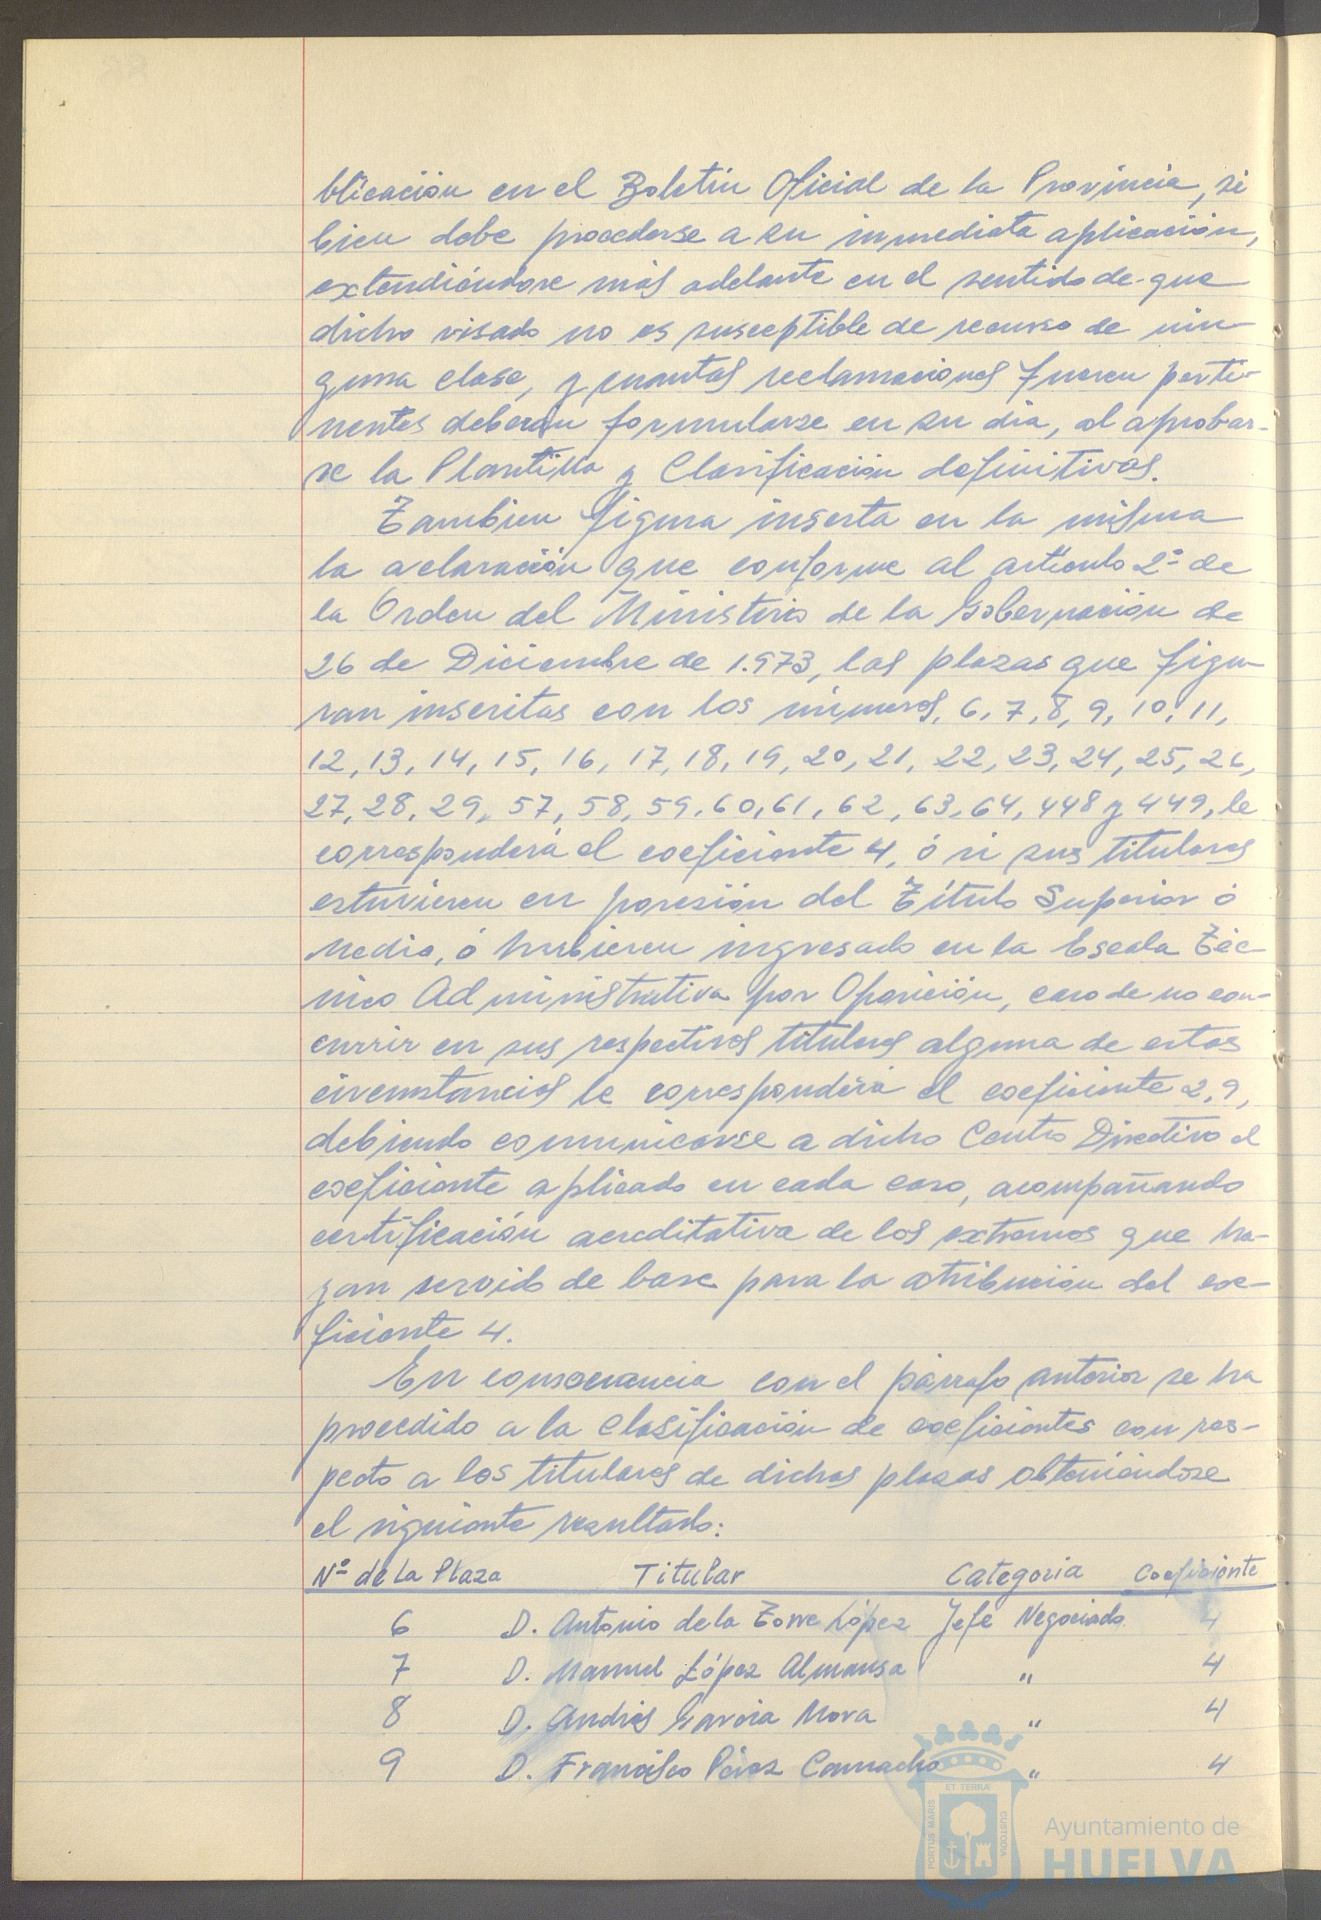 blicación en el Boletin Oficial de la Provincia, si
bien debe procederse a su inmediata aplicación,
extendiéndose más adelante en el sentido de que
dicho visado no es susceptible de recurso de nin-
guna clase, y cuantas reclamaciones fueren perti-
nentes deberán formularse en su dia, al aprobar-
se la Plantilla y Clasificación definitivas.
Tambien figura inserta en la misma
la aclaración que conforme al artículo 2º de
la Orden del Ministerio de la Gobernación de
26 de Diciembre de 1.973, las plazas que figu-
ran inscritas con los números, 6, 7, 8, 9, 10, 11,
12, 13, 14, 15, 16, 17, 18, 19, 20, 21, 22, 23, 24, 25, 26,
27, 28, 29, 57, 58, 59, 60, 61, 62, 63, 64, 448 y 449, le
corresponderá el coeficiente 4, ó si sus titulares
estuvieren en posesión del Título Superior ó
Medio, ó hubieren ingresado en la Escala Téc-
nico Administrativa por Oposición, caso de no con-
currir en sus respectivos titulares alguna de estas
circunstancias le corresponderá el coeficiente 2,9,
debiendo comunicarse a dicho Centro Directivo el
coeficiente aplicado en cada caso, acompañando
certificación acreditativa de los extremos que ha-
yan servido de base para la atribución del coe-
ficiente 4.
En consecuencia con el párrafo anterior se ha
procedido a la clasificación de coeficientes con res-
pecto a los titulares de dichas plazas obteniéndose
el siguiente resultado:
Nº de la Plaza Titular Categoria Coeficiente
6 D. Antonio de la Torre López Jefe Negociado 4
7 D. Manuel López Almansa " 4
8 D. Andrés Garcia Mora " 4
9 D. Francisco Pérez Camacho " 4
ET TERRÆ
PORTUS MARIS
CUSTODIA
Ayuntamiento de
HUELVA